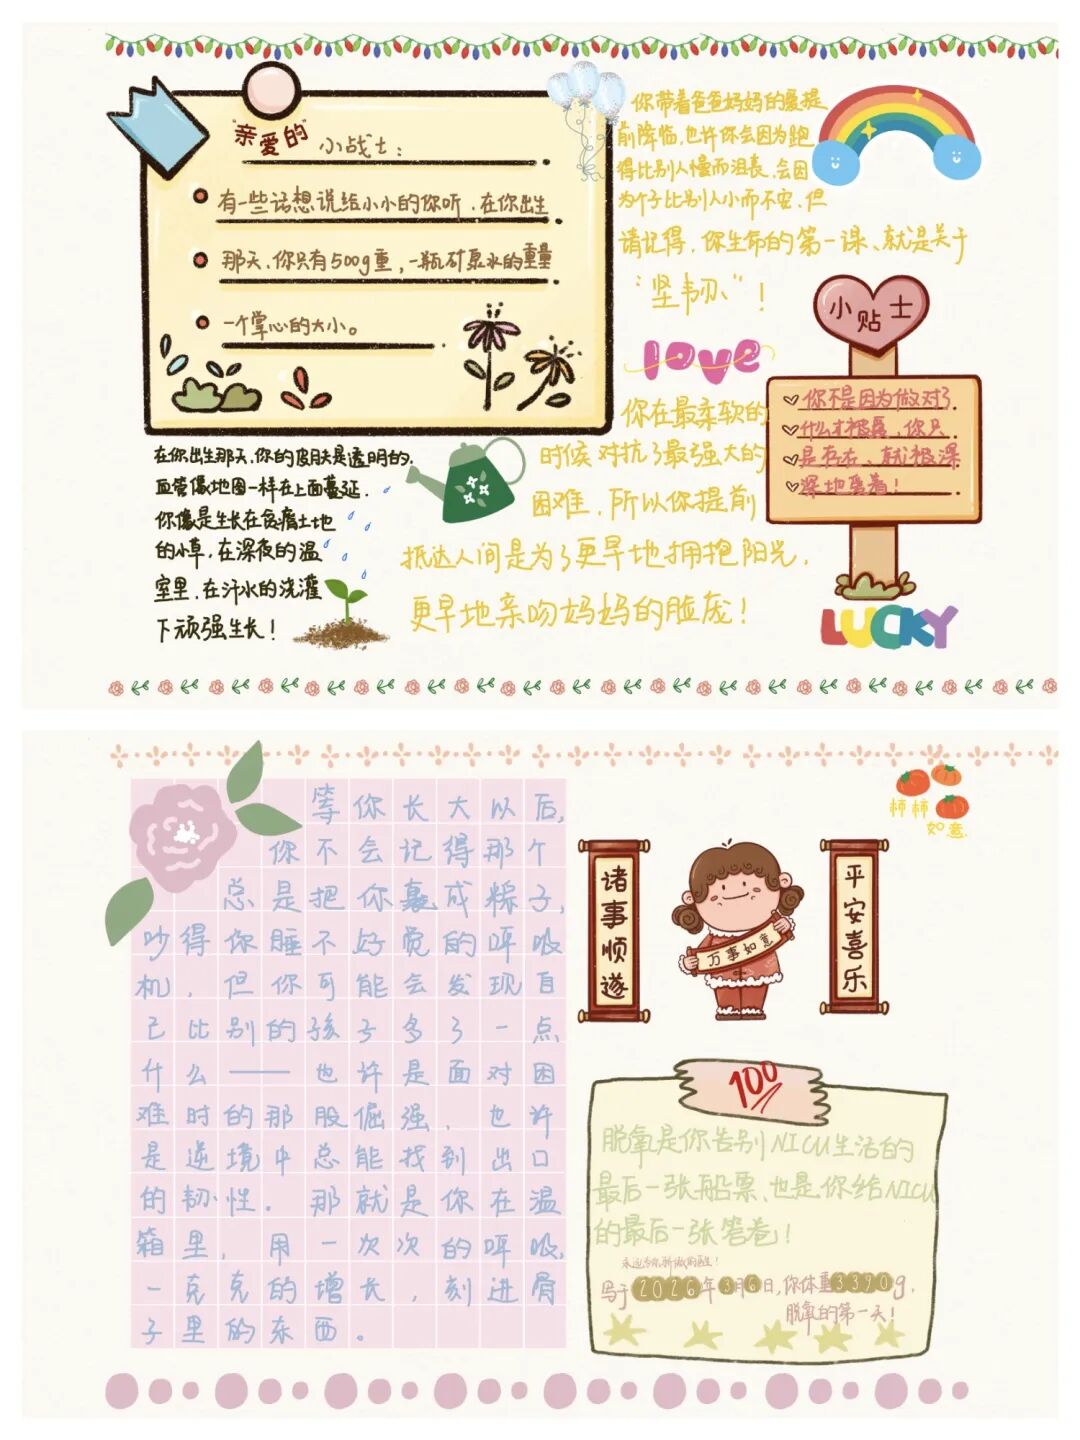 "亲爱的"
小战士：
有一些话想说给小小的你听，在你出生
那天、你只有500g重，一瓶矿泉水的重量
一个掌心的大小。
你带着爸爸妈妈的爱提
前降临，也许你会因为跑
得比别人慢而沮丧，会因
为个子比别人小而不安，但
请记得，你生命的第一课、就是关于
"坚韧"！
love
你在最柔软的
时候对抗了最强大的
困难，所以你提前
抵达人间是为了更早地拥抱阳光，
更早地亲吻妈妈的脸庞！
小贴士
你不是因为做对了
什么才被爱，你只
是存在、就被深
深地爱着！
LUCKY
在你出生那天，你的皮肤是透明的，
血管像地图一样在上面蔓延，
你像是生长在贫瘠土地
的小草，在深夜的温
室里，在汗水的浇灌
下顽强生长！
等你长大以后，
你不会记得那个
总是把你裹成粽子，
吵得你睡不好觉的呼吸
机，但你可能会发现自
己比别的孩子多了一点
什么——也许是面对困
难时的那股倔强，也许
是逆境中总能找到出口
的韧性。那就是你在温
箱里，用一次次的呼吸，
一克克的增长，刻进骨
子里的东西。
柿柿
如意
诸事顺遂
万事如意
平安喜乐
100
脱氧是你告别NICU生活的
最后一张船票、也是你给NICU
的最后一张答卷！
永远为你骄傲的医生！
写于2026年3月6日，你体重3390g，
脱氧的第一天！